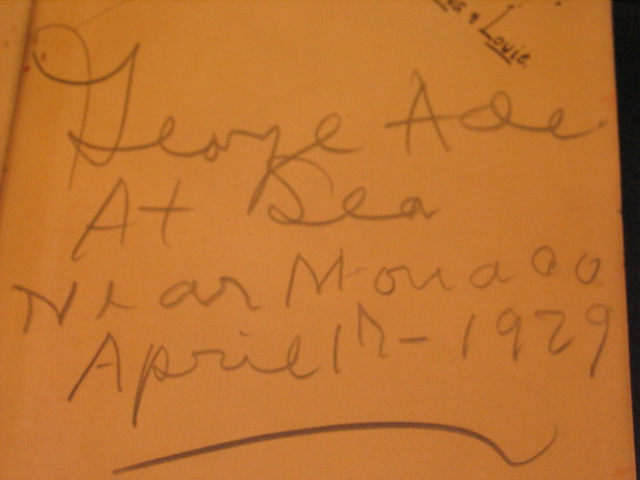 & Louie.
George Ade
At Sea
Near Monaco
April 17 - 1929